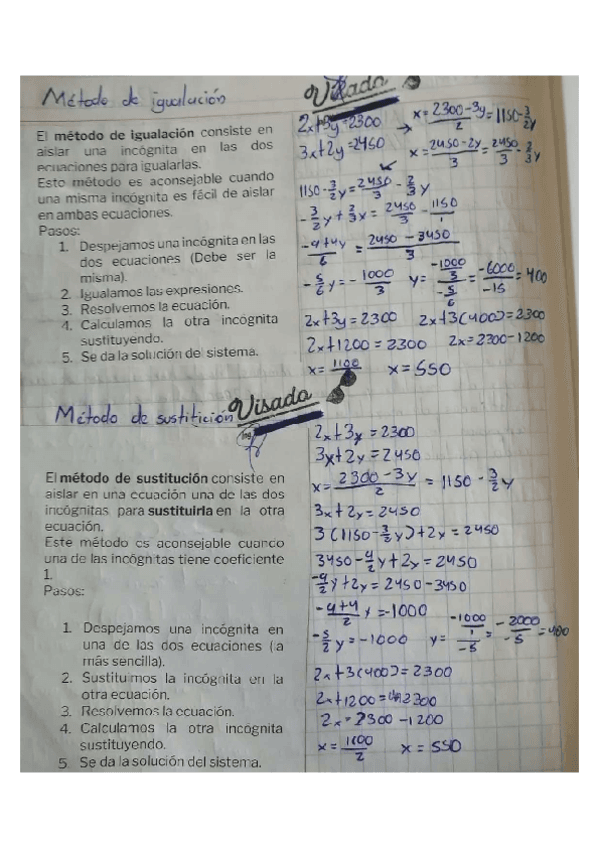 Método de igualación
Visado
El método de igualación consiste en
aislar una incógnita en las dos
ecuaciones para igualarlas.
Esto método es aconsejable cuando
una misma incógnita es fácil de aislar
en ambas ecuaciones.
Pasos:
1. Despejamos una incógnita en las
dos ecuaciones (Debe ser la
misma).
2. Igualamos las expresiones.
3. Resolvemos la ecuación.
4. Calculamos la otra incógnita
sustituyendo.
5. Se da la solución del sistema.
2x+3y=2300
x=2300-3y/2=1150-3/2y
3x+2y=2450
x=2450-2y/3=2450/3-2/3y
1150-3/2y=2450/3-2/3y
-3/2y+2/3x=2450/3-1150/1
-9+4y/6=2450-3450/3
-5/6y=-1000/3 y=-1000/3/-5/6=-6000/-15=400
2x+3y=2300 2x+3(400)=2300
2x+1200=2300 2x=2300-1200
x=1100/2 x=550
Método de sustitición
Visado
Ing.
El método de sustitución consiste en
aislar en una ecuación una de las dos
incógnitas para sustituirla en la otra
ecuación.
Este método es aconsejable cuando
una de las incógnitas tiene coeficiente
1.
Pasos:
1. Despejamos una incógnita en
una de las dos ecuaciones (la
más sencilla).
2. Sustituimos la incógnita en la
otra ecuación.
3. Resolvemos la ecuación.
4. Calculamos la otra incógnita
sustituyendo.
5. Se da la solución del sistema.
2x+3y=2300
3x+2y=2450
x=2300-3y/2=1150-3/2y
3x+2y=2450
3(1150-3/2y)+2y=2450
3450-9/2y+2y=2450
-9/2y+2y=2450-3450
-9+4/2y=-1000
-5/2y=-1000 y=-1000/1/-5=-2000/-5=400
2x+3(400)=2300
2x+1200=2300
2x=2300-1200
x=1100/2 x=550